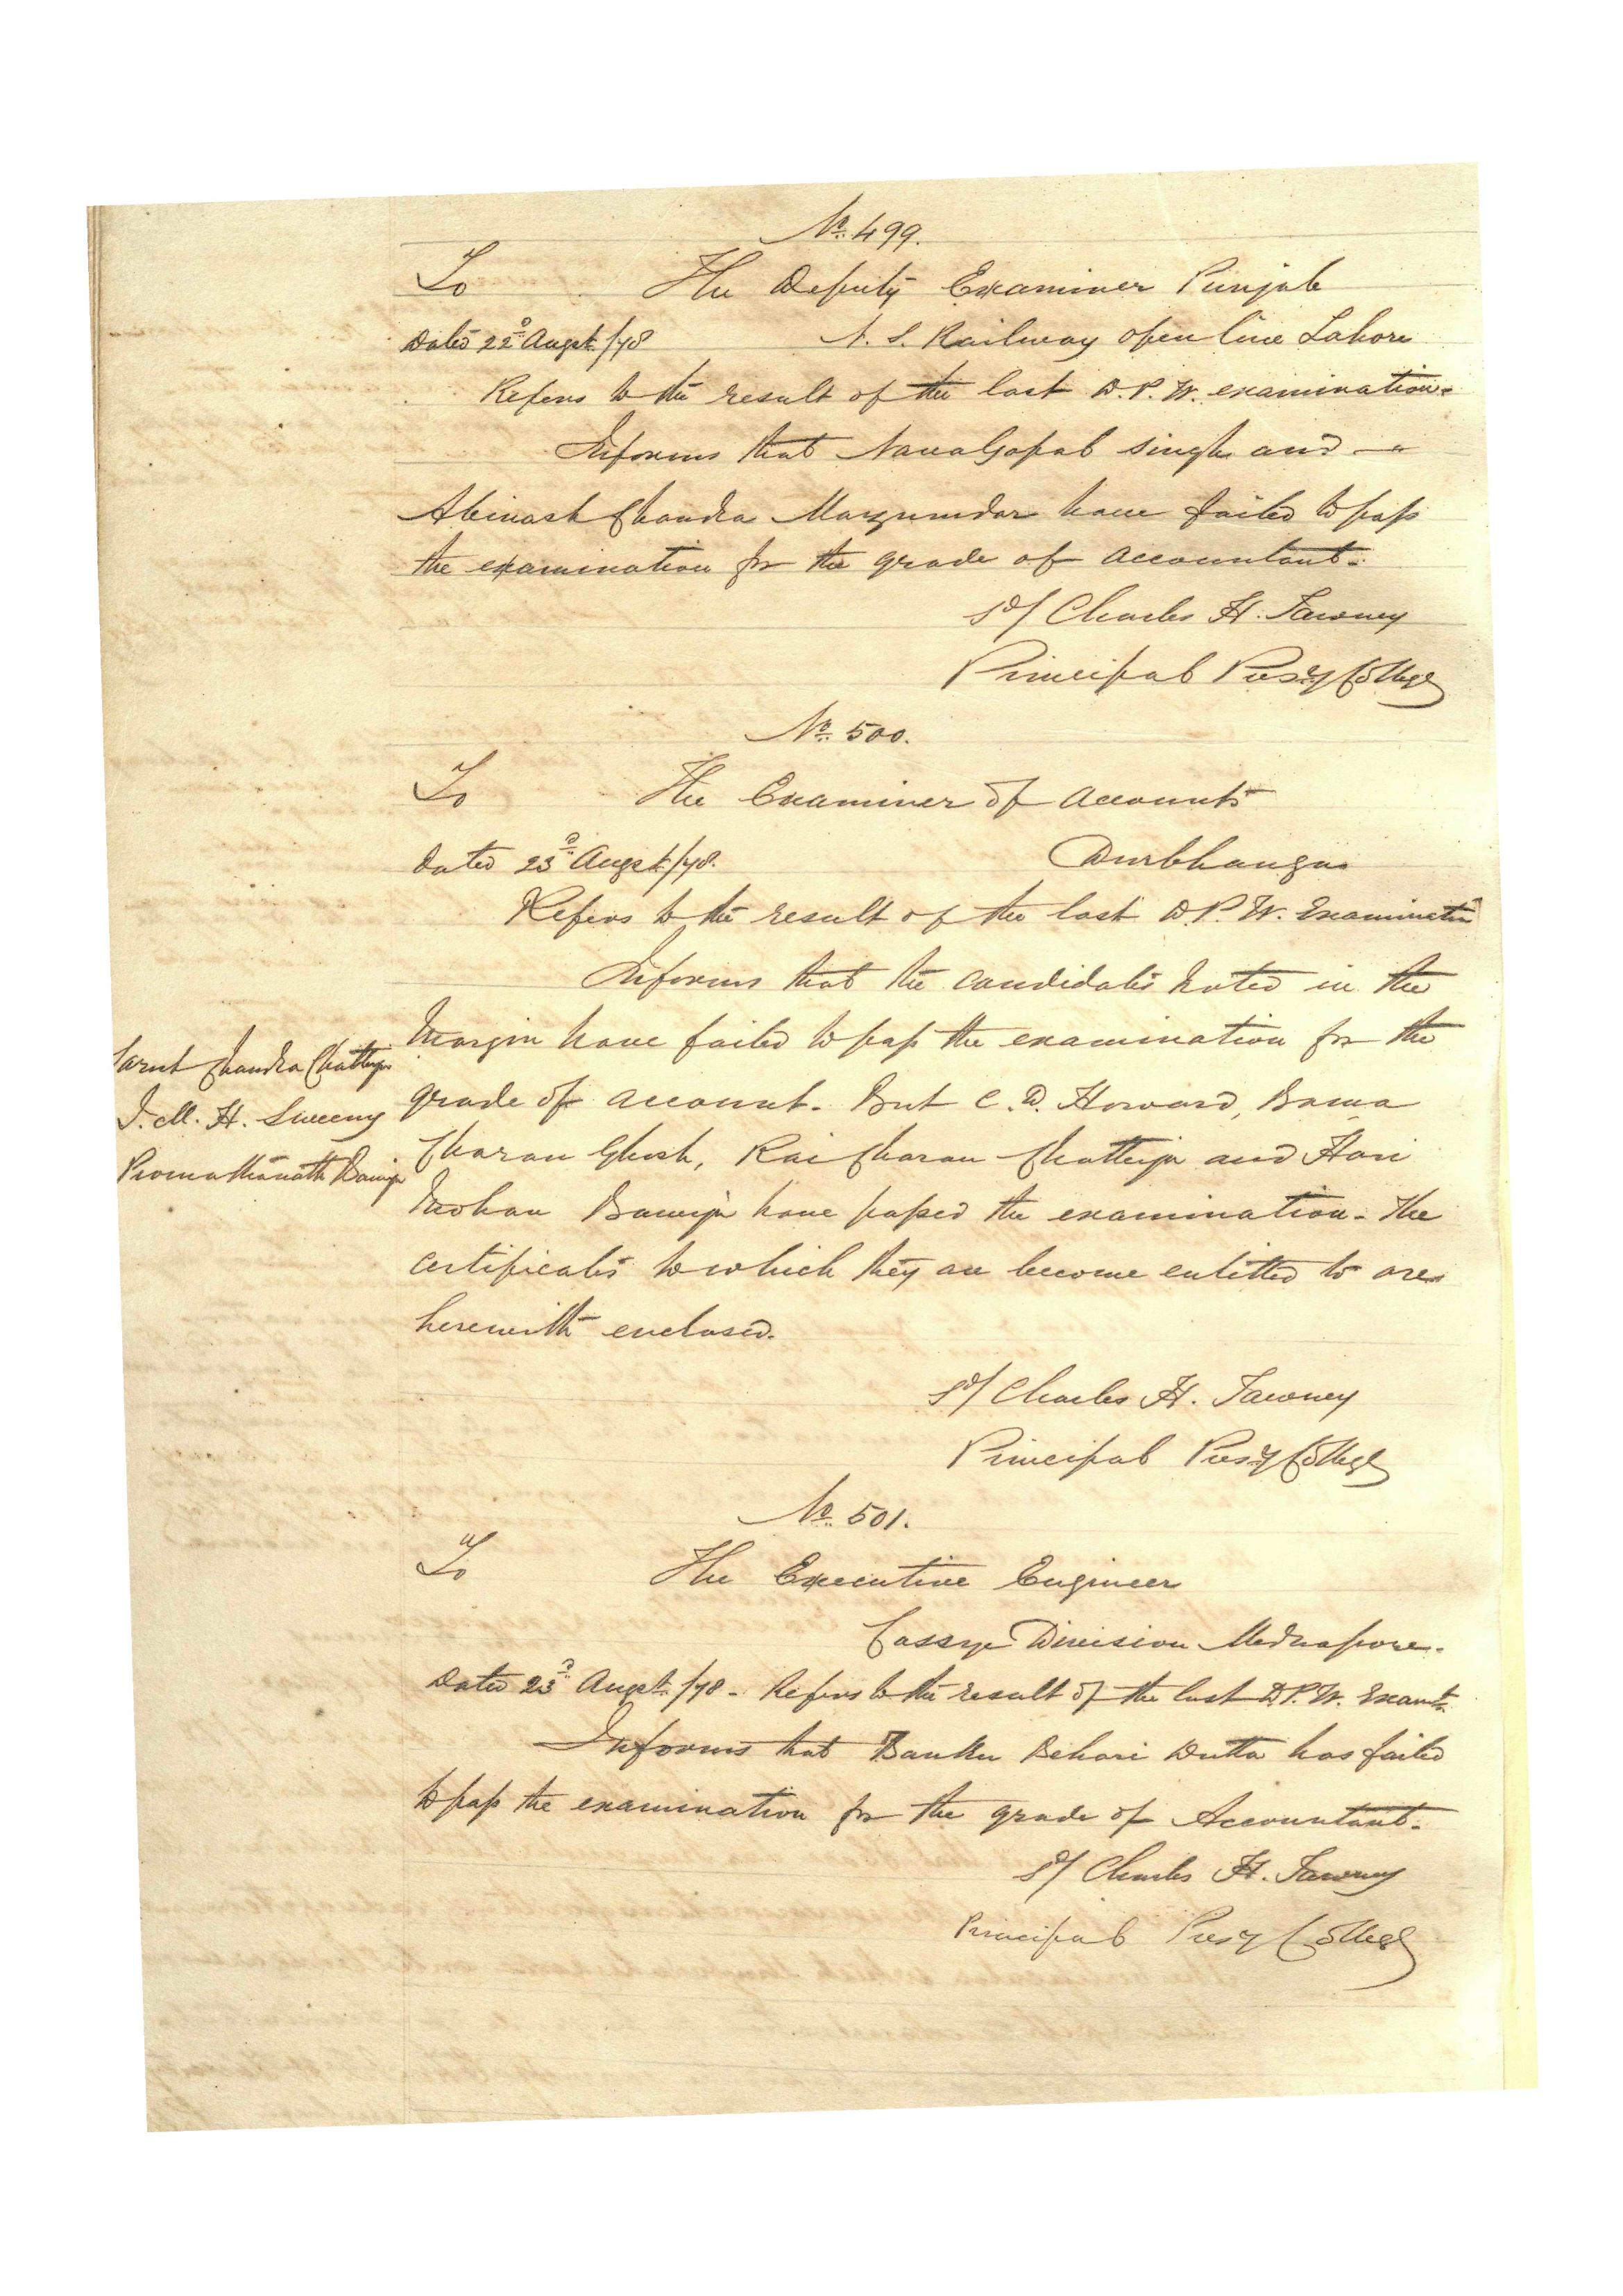 No. 499.
To The Deputy Examiner Punjab
Dated 22d Augst /78 N. S. Railway open line Lahore
Refers to the result of the last D. P. W. examination.
Informs that NavaGopal Singh and
Abinash Chandra Mazumdar have failed to pass
the examination for the grade of accountant.
Sd/ Charles H. Tawney
Principal Presy College
No. 500.
To The Examiner of Accounts
Dated 23d Augst /78. Durbhanga
Refers to the result of the last D. P. W. Examinatn
Informs that the candidates noted in the
margin have failed to pass the examination for the
Sarut Chandra Chatterji
grade of account. But C. D. Howard, Bama
J. M. H. Sweeny
Charan Ghosh, Rai Charan Chatterja and Hari
Promathanath Banerja
Mohan Banerja have passed the examination. The
certificates to which they are become entitled to are
herewith enclosed.
Sd/ Charles H. Tawney
Principal Presy College
No. 501.
To The Executive Engineer
Cassye Division Mednapore.
Dated 23d Augst /78. Refers to the result of the last D. P. W. Examtn.
Informs that Banku Behari Dutta has failed
to pass the examination for the grade of Accountant.
Sd/ Charles H. Tawney
Principal Presy College